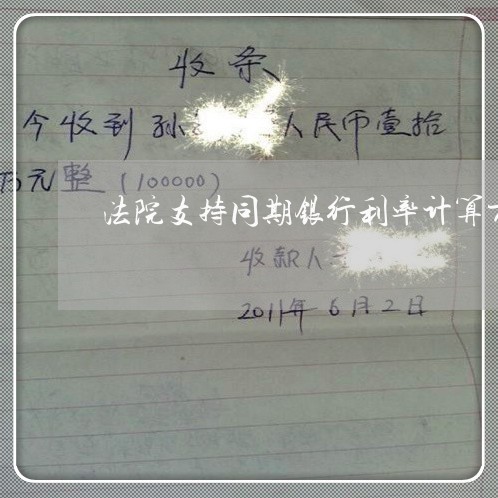 收条
今收到孙 人民币壹拾
万元整(100000)
法院支持同期银行利率计算
收款人
2011年6月2日